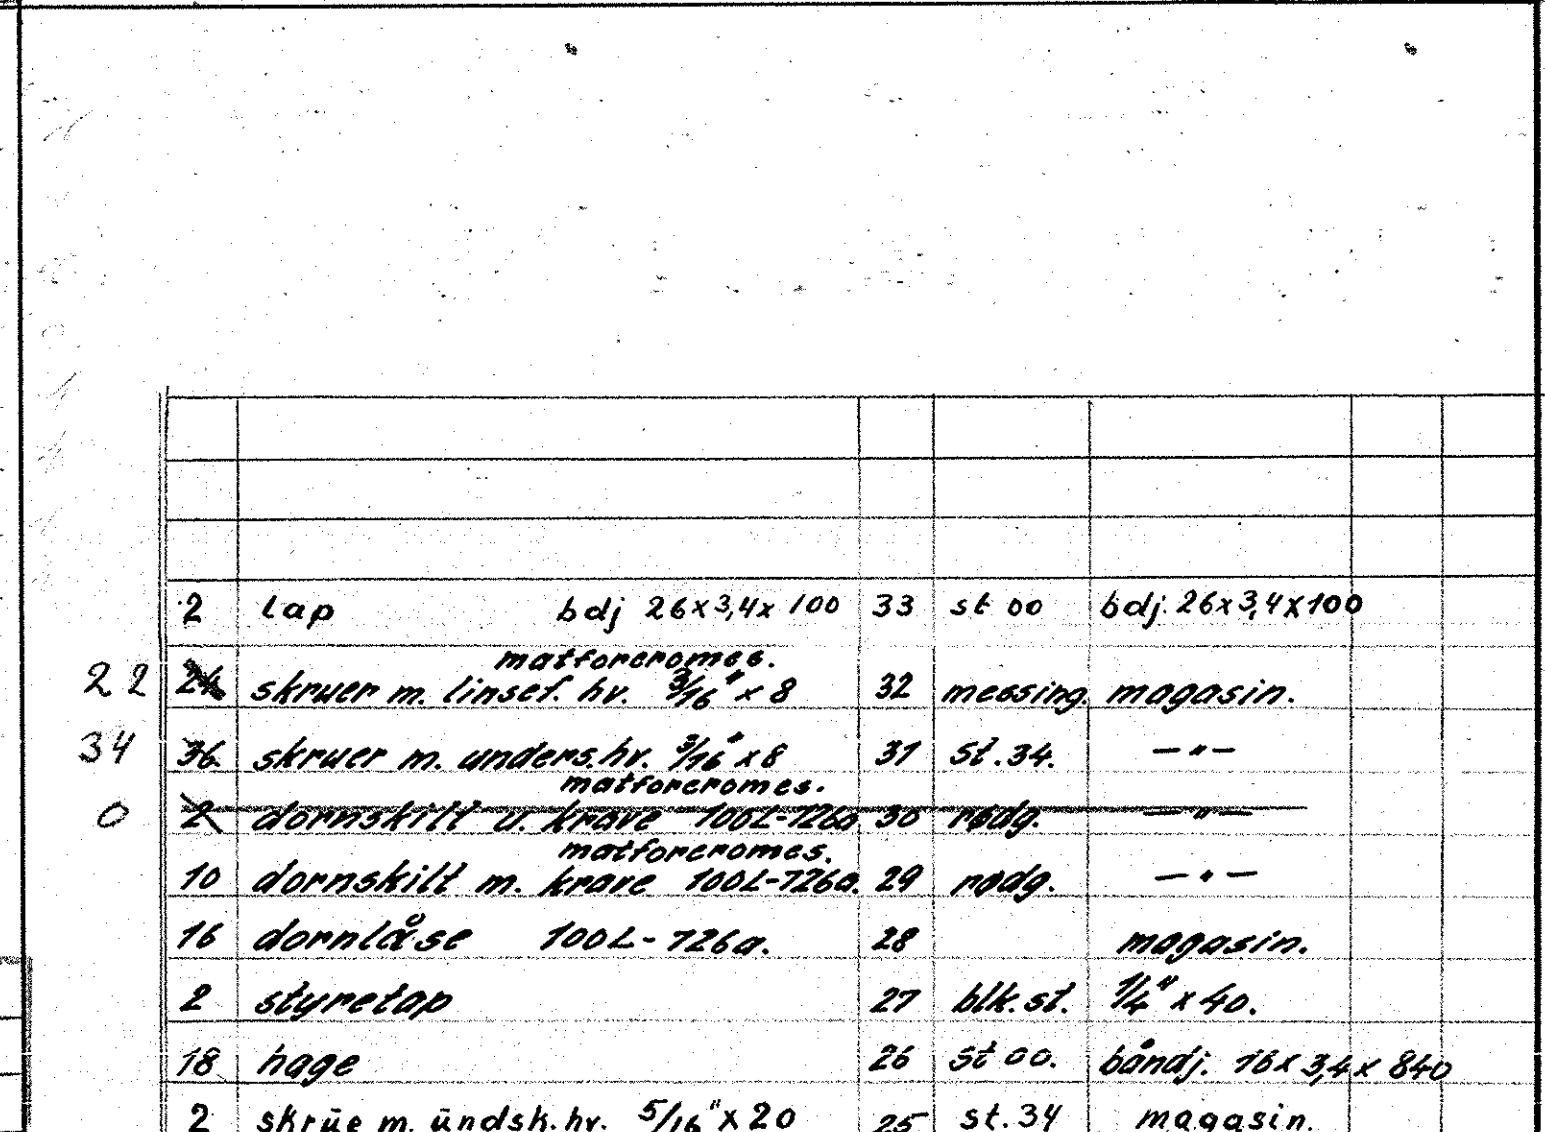 2 lap bdj 26x3,4x100 33 st 00 bdj. 26x3,4x100
matforcromes.
22 24 skruer m. linsef. hv. 3/16" x 8 32 messing. magasin.
34 36. skruer m. unders. hv. 3/16" x 8 31 st. 34. —"—
matforcromes.
0 2 dornskilt u. krave 100L-726a 30 rødg. —"—
matforcromes.
10 dornskilt m. krave 100L-726a. 29 rødg. —"—
16 dornlåse 100L-726a. 28 magasin.
2 styretap 27 blk. st. 1/4" x 40.
18 hage 26 st 00. båndj. 16x3,4x840
2 skrūe m. ūndsk. hv. 5/16" x 20 25 st. 34 magasin.